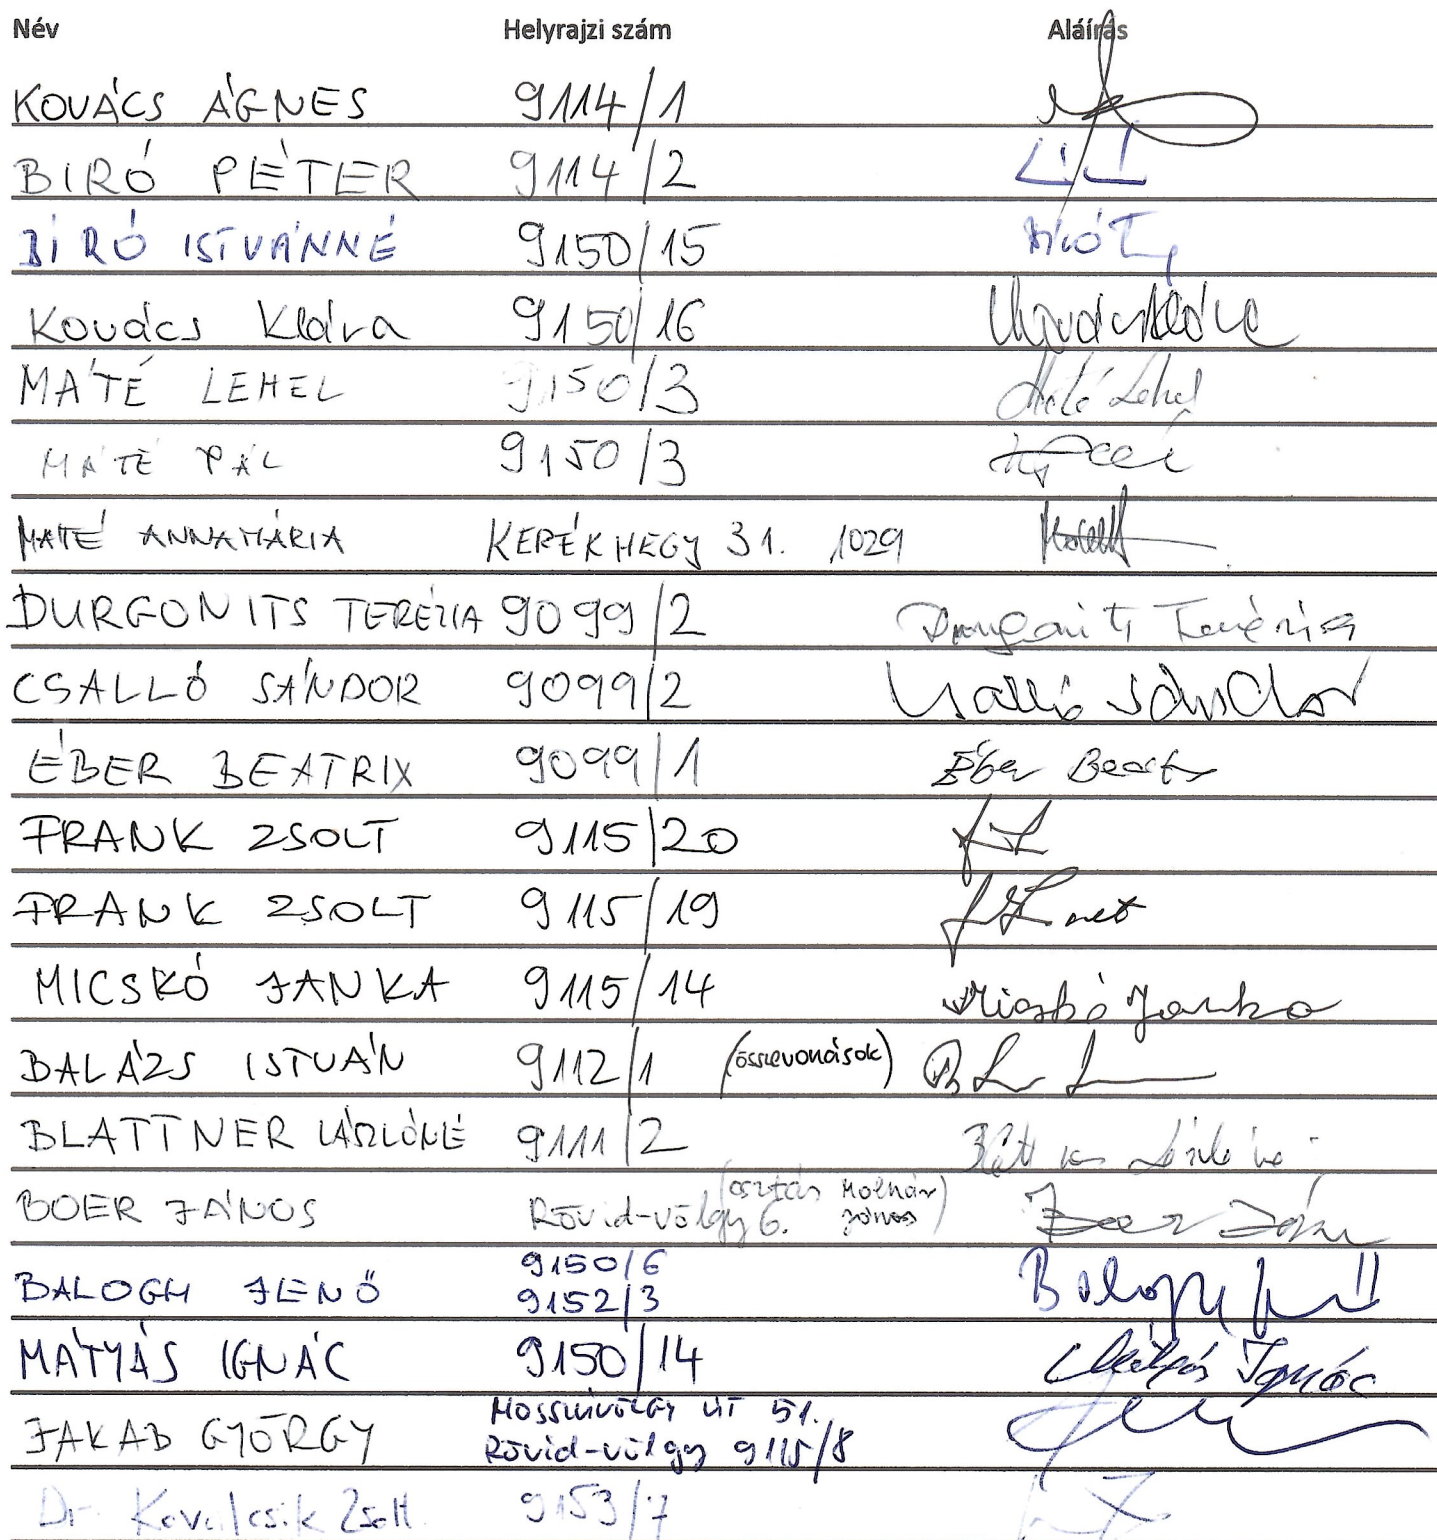 Név Helyrajzi szám Aláírás
KOVÁCS ÁGNES 9114/1
BIRÓ PÉTER 9114/2
BIRÓ ISTVÁNNÉ 9150/15
Kovács Klára 9150/16 Kovács Klára
MÁTÉ LEHEL 9150/3 Máté Lehel
MÁTÉ PÁL 9150/3
MÁTÉ ANNAMÁRIA KERÉKHEGY 31. 1029
DURGONITS TERÉZIA 9099/2 Durgonits Terézia
CSALLÓ SÁNDOR 9099/2 Csalló Sándor
ÉBER BEATRIX 9099/1 Éber Beatrix
FRANK ZSOLT 9115/20
FRANK ZSOLT 9115/19
MICSKÓ JANKA 9115/14 Micskó Janka
BALÁZS ISTVÁN 9112/1 (összevonások)
BLATTNER LÁSZLÓNÉ 9111/2
BOER JÁNOS Rövid-völgy 6. (osztás Molnár János) Boer János
BALOGH JENŐ 9150/6 9152/3 Balogh Jenő
MÁTYÁS IGNÁC 9150/14 Mátyás Ignác
JAKAB GYÖRGY ÚT 51.
Rövid-völgy 9115/8
Dr. Kovalcsik Zsolt 9153/7